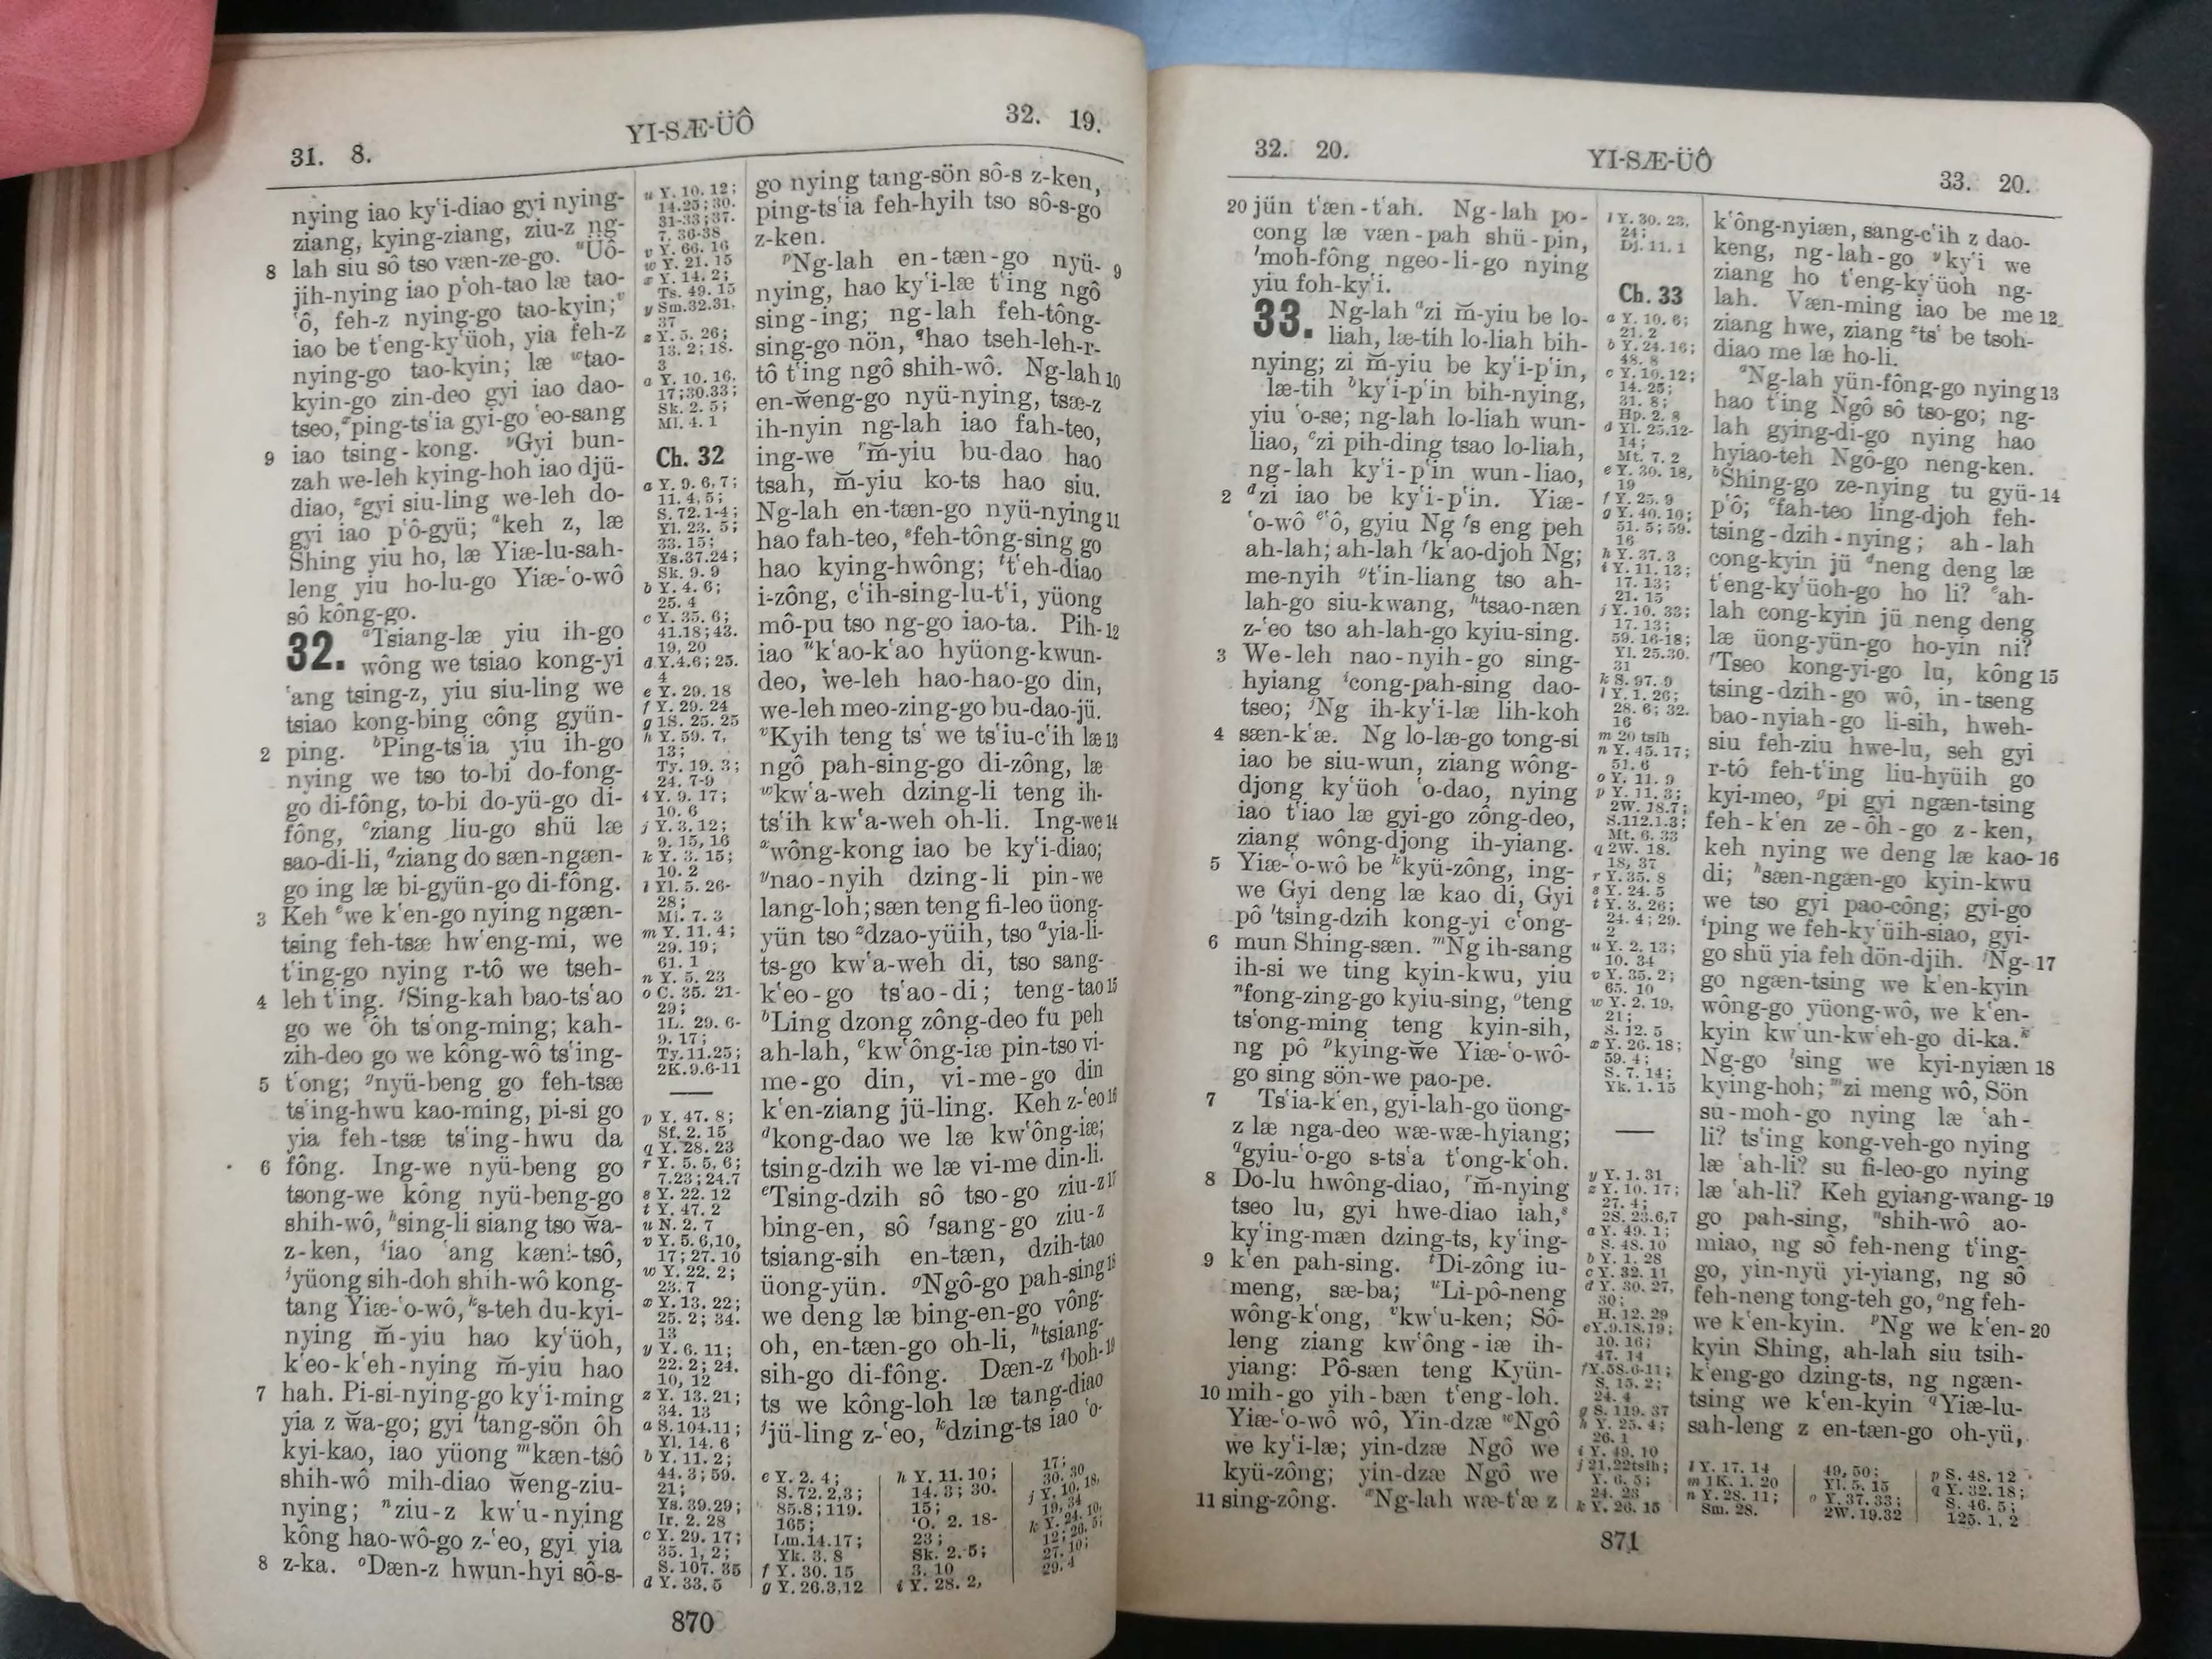 31. 8.
YI-SÆ-ÜÔ
32. 19.
nying iao ky'i-diao gyi nying-
ziang, kying-ziang, ziu-z ng-
8 lah siu sô tso væn-ze-go. "Üô-
jih-nying iao p'oh-tao læ tao-
'ô, feh-z nying-go tao-kyin;ᵛ
iao be t'eng-ky'üoh, yia feh-z
nying-go tao-kyin; læ ʷtao-
kyin-go zin-deo gyi iao dao-
tseo,ˣping-ts'ia gyi-go 'eo-sang
9 iao tsing-kong. ʸGyi bun-
zah we-leh kying-hoh iao djü-
diao, ᶻgyi siu-ling we-leh do-
gyi iao p'ô-gyü; ᵃkeh z, læ
Shing yiu ho, læ Yiæ-lu-sah-
leng yiu ho-lu-go Yiæ-'o-wô
sô kông-go.
32. ᵃTsiang-læ yiu ih-go
wông we tsiao kong-yi
'ang tsing-z, yiu siu-ling we
tsiao kong-bing công gyün-
2 ping. ᵇPing-ts'ia yiu ih-go
nying we tso to-bi do-fong-
go di-fông, to-bi do-yü-go di-
fông, ᶜziang liu-go shü læ
sao-di-li, ᵈziang do sæn-ngæn-
go ing læ bi-gyün-go di-fông.
3 Keh ᵉwe k'en-go nying ngæn-
tsing feh-tsæ hw'eng-mi, we
t'ing-go nying r-tô we tseh-
4 leh t'ing. ᶠSing-kah bao-ts'ao
go we 'ôh ts'ong-ming; kah-
zih-deo go we kông-wô ts'ing-
5 t'ong; ᵍnyü-beng go feh-tsæ
ts'ing-hwu kao-ming, pi-si go
yia feh-tsæ ts'ing-hwu da
6 fông. Ing-we nyü-beng go
tsong-we kông nyü-beng-go
shih-wô, ʰsing-li siang tso w̆a-
z-ken, ⁱiao 'ang kæn-tsô,
ʲyüong sih-doh shih-wô kong-
tang Yiæ-'o-wô,ᵏs-teh du-kyi-
nying m̆-yiu hao ky'üoh,
k'eo-k'eh-nying m̆-yiu hao
7 hah. Pi-si-nying-go ky'i-ming
yia z w̆a-go; gyi ˡtang-sön ôh
kyi-kao, iao yüong ᵐkæn-tsô
shih-wô mih-diao w̆eng-ziu-
nying; ⁿziu-z kw'u-nying
kông hao-wô-go z-'eo, gyi yia
8 z-ka. ᵒDæn-z hwun-hyi sô-s-
u Y. 10. 12;
14.25; 30.
31-33; 37.
7, 36-38
v Y. 66. 16
w Y. 21. 15
x Y. 14. 2;
Ts. 49. 15
y Sm.32.31,
37
z Y. 5. 26;
13. 2; 18.
3
a Y. 10. 16,
17;30.33;
Sk. 2. 5;
Ml. 4. 1
Ch. 32
a Y. 9. 6, 7;
11. 4, 5;
S. 72.1-4;
Yl. 23. 5;
33. 15;
Ys.37.24;
Sk. 9. 9
b Y. 4. 6;
25. 4
c Y. 35. 6;
41.18; 43.
19, 20
d Y.4.6; 25.
4
e Y. 29. 18
f Y. 29. 24
g 1S. 25. 25
h Y. 59. 7,
13;
Ty. 19. 3;
24. 7-9
i Y. 9. 17;
10. 6
j Y. 3. 12;
9. 15, 16
k Y. 3. 15;
10. 2
l Yl. 5. 26-
28;
Mi. 7. 3
m Y. 11. 4;
29. 19;
61. 1
n Y. 5. 23
o C. 35. 21-
29;
1L. 29. 6-
9, 17;
Ty.11.25;
2K.9.6-11
p Y. 47. 8;
Sf. 2. 15
q Y. 28. 23
r Y. 5. 5, 6;
7.23; 24.7
s Y. 22. 12
t Y. 47. 2
u N. 2. 7
v Y. 5. 6,10,
17; 27. 10
w Y. 22. 2;
23. 7
x Y. 13. 22;
25. 2; 34.
13
y Y. 6. 11;
22. 2; 24.
10, 12
z Y. 13. 21;
34. 13
a S.104.11;
Yl. 14. 6
b Y. 11. 2;
44. 3; 59.
21;
Ys. 39.29;
Ir. 2. 28
c Y. 29. 17;
35. 1, 2;
S. 107. 35
d Y. 33. 5
go nying tang-sön sô-s z-ken,
ping-ts'ia feh-hyih tso sô-s-go
z-ken.
ᵖNg-lah en-tæn-go nyü- 9
nying, hao ky'i-læ t'ing ngô
sing-ing; ng-lah feh-tông-
sing-go nön, ᑫhao tseh-leh-r-
tô t'ing ngô shih-wô. Ng-lah 10
en-w̆eng-go nyü-nying, tsæ-z
ih-nyin ng-lah iao fah-teo,
ing-we ʳm̆-yiu bu-dao hao
tsah, m̆-yiu ko-ts hao siu.
Ng-lah en-tæn-go nyü-nying 11
hao fah-teo, ˢfeh-tông-sing go
hao kying-hwông; ᵗt'eh-diao
i-zông, c'ih-sing-lu-t'i, yüong
mô-pu tso ng-go iao-ta. Pih- 12
iao ᵘk'ao-k'ao hyüong-kwun-
deo, we-leh hao-hao-go din,
we-leh meo-zing-go bu-dao-jü.
ᵛKyih teng ts' we ts'iu-c'ih læ 13
ngô pah-sing-go di-zông, læ
ʷkw'a-weh dzing-li teng ih-
ts'ih kw'a-weh oh-li. Ing-we 14
ˣwông-kong iao be ky'i-diao;
ʸnao-nyih dzing-li pin-we
lang-loh; sæn teng fi-leo üong-
yün tso ᶻdzao-yüih, tso ᵃyia-li-
ts-go kw'a-weh di, tso sang-
k'eo-go ts'ao-di; teng-tao 15
ᵇLing dzong zông-deo fu peh
ah-lah, ᶜkw'ông-iæ pin-tso vi-
me-go din, vi-me-go din
k'en-ziang jü-ling. Keh z-'eo 16
ᵈkong-dao we læ kw'ông-iæ;
tsing-dzih we læ vi-me din-li.
ᵉTsing-dzih sô tso-go ziu-z 17
bing-en, sô ᶠsang-go ziu-z
tsiang-sih en-tæn, dzih-tao
üong-yün. ᵍNgô-go pah-sing 18
we deng læ bing-en-go vông-
oh, en-tæn-go oh-li, ʰtsiang-
sih-go di-fông. Dæn-z ⁱboh- 19
ts we kông-loh læ tang-diao
ʲjü-ling z-'eo, ᵏdzing-ts iao 'o-
e Y. 2. 4;
S. 72. 2,3;
85.8; 119.
165;
Lm.14.17;
Yk. 3. 8
f Y. 30. 15
g Y. 26.3,12
h Y. 11. 10;
14. 3; 30.
15;
'O. 2. 18-
23;
Sk. 2. 5;
3. 10
i Y. 28. 2,
17;
30. 30
j Y. 10. 18,
19, 34
k Y. 24. 10,
12; 26. 5;
27. 10;
29. 4
870
32. 20.
YI-SÆ-ÜÔ
33. 20.
20 jün t'æn-t'ah. Ng-lah po-
cong læ væn-pah shü-pin,
ˡmoh-fông ngeo-li-go nying
yiu foh-ky'i.
33. Ng-lah ᵃzi m̆-yiu be lo-
liah, læ-tih lo-liah bih-
nying; zi m̆-yiu be ky'i-p'in,
læ-tih ᵇky'i-p'in bih-nying,
yiu 'o-se; ng-lah lo-liah wun-
liao, ᶜzi pih-ding tsao lo-liah,
ng-lah ky'i-p'in wun-liao,
2 ᵈzi iao be ky'i-p'in. Yiæ-
'o-wô ᵉ'ô, gyiu Ng ᶠs eng peh
ah-lah; ah-lah ᶠk'ao-djoh Ng;
me-nyih ᵍt'in-liang tso ah-
lah-go siu-kwang, ʰtsao-næn
z-'eo tso ah-lah-go kyiu-sing.
3 We-leh nao-nyih-go sing-
hyiang ⁱcong-pah-sing dao-
tseo; ʲNg ih-ky'i-læ lih-koh
4 sæn-k'æ. Ng lo-læ-go tong-si
iao be siu-wun, ziang wông-
djong ky'üoh 'o-dao, nying
iao t'iao læ gyi-go zông-deo,
ziang wông-djong ih-yiang.
5 Yiæ-'o-wô be ᵏkyü-zông, ing-
we Gyi deng læ kao di, Gyi
pô ˡtsing-dzih kong-yi c'ong-
6 mun Shing-sæn. ᵐNg ih-sang
ih-si we ting kyin-kwu, yiu
ⁿfong-zing-go kyiu-sing, ᵒteng
ts'ong-ming teng kyin-sih,
ng pô ᵖkying-w̆e Yiæ-'o-wô-
go sing sön-we pao-pe.
7 Ts'ia-k'en, gyi-lah-go üong-
z læ nga-deo wæ-wæ-hyiang;
ᑫgyiu-'o-go s-ts'a t'ong-k'oh.
8 Do-lu hwông-diao, ʳm̆-nying
tseo lu, gyi hwe-diao iah,ˢ
ky'ing-mæn dzing-ts, ky'ing-
9 k'en pah-sing. ᵗDi-zông iu-
meng, sæ-ba; ᵘLi-pô-neng
wông-k'ong, ᵛkw'u-ken; Sô-
leng ziang kw'ông-iæ ih-
yiang: Pô-sæn teng Kyün-
10 mih-go yih-bæn t'eng-loh.
Yiæ-'o-wô wô, Yin-dzæ ʷNgô
we ky'i-læ; yin-dzæ Ngô we
kyü-zông; yin-dzæ Ngô we
11 sing-zông. ˣNg-lah wæ-t'æ z
l Y. 30. 23,
24;
Dj. 11. 1
Ch. 33
a Y. 10. 6;
21. 2
b Y. 24. 16;
48. 8
c Y. 10. 12;
14. 25;
31. 8;
Hp. 2. 8
d Yl. 25.12-
14;
Mt. 7. 2
e Y. 30. 18,
19
f Y. 25. 9
g Y. 40. 10;
51. 5; 59.
16
h Y. 37. 3
i Y. 11. 13;
17. 13;
21. 15
j Y. 10. 33;
17. 13;
59. 16-18;
Yl. 25.30,
31
k S. 97. 9
l Y. 1. 26;
28. 6; 32.
16
m 20 tsih
n Y. 45. 17;
51. 6
o Y. 11. 9
p Y. 11. 3;
2W. 18.7;
S.112.1.3;
Mt. 6. 33
q 2W. 18.
18, 37
r Y. 35. 8
s Y. 24. 5
t Y. 3. 26;
24. 4; 29.
2
u Y. 2. 13;
10. 34
v Y. 35. 2;
65. 10
w Y. 2. 19,
21;
S. 12. 5
x Y. 26. 18;
59. 4;
S. 7. 14;
Yk. 1. 15
y Y. 1. 31
z Y. 10. 17;
27. 4;
2S. 23.6,7
a Y. 49. 1;
S. 48. 10
b Y. 1. 28
c Y. 32. 11
d Y. 30. 27,
30;
H. 12. 29
e Y.9.18,19;
10. 16;
47. 14
f Y.58.6-11;
S. 15. 2;
24. 4
g S. 119. 37
h Y. 25. 4;
26. 1
i Y. 49. 10
j 21,22tsih;
Y. 6. 5;
24. 23
k Y. 26. 15
k'ông-nyiæn, sang-c'ih z dao-
keng, ng-lah-go ʸky'i we
ziang ho t'eng-ky'üoh ng-
lah. Væn-ming iao be me 12
ziang hwe, ziang ᶻts' be tsoh-
diao me læ ho-li.
ᵃNg-lah yün-fông-go nying 13
hao t'ing Ngô sô tso-go; ng-
lah gying-di-go nying hao
hyiao-teh Ngô-go neng-ken.
ᵇShing-go ze-nying tu gyü- 14
p'ô; ᶜfah-teo ling-djoh feh-
tsing-dzih-nying; ah-lah
cong-kyin jü ᵈneng deng læ
t'eng-ky'üoh-go ho li? ᵉah-
lah cong-kyin jü neng deng
læ üong-yün-go ho-yin ni?
ᶠTseo kong-yi-go lu, kông 15
tsing-dzih-go wô, in-tseng
bao-nyiah-go li-sih, hweh-
siu feh-ziu hwe-lu, seh gyi
r-tô feh-t'ing liu-hyüih go
kyi-meo, ᵍpi gyi ngæn-tsing
feh-k'en ze-ôh-go z-ken,
keh nying we deng læ kao- 16
di; ʰsæn-ngæn-go kyin-kwu
we tso gyi pao-công; gyi-go
ⁱping we feh-ky'üih-siao, gyi-
go shü yia feh dön-djih. ʲNg- 17
go ngæn-tsing we k'en-kyin
wông-go yüong-wô, we k'en-
kyin kw'un-kw'eh-go di-ka.ᵏ
Ng-go ˡsing we kyi-nyiæn 18
kying-hoh; ᵐzi meng wô, Sön
su-moh-go nying læ 'ah-
li? ts'ing kong-veh-go nying
læ 'ah-li? su fi-leo-go nying
læ 'ah-li? Keh gyiang-wang- 19
go pah-sing, ⁿshih-wô ao-
miao, ng sô feh-neng t'ing-
go, yin-nyü yi-yiang, ng sô
feh-neng tong-teh go,ᵒng feh-
we k'en-kyin. ᵖNg we k'en- 20
kyin Shing, ah-lah siu tsih-
k'eng-go dzing-ts, ng ngæn-
tsing we k'en-kyin ᑫYiæ-lu-
sah-leng z en-tæn-go oh-yü,
l Y. 17. 14
m 1K. 1. 20
n Y. 28. 11;
Sm. 28.
49, 50;
Yl. 5. 15
o Y. 37. 33;
2W. 19.32
p S. 48. 12
q Y. 32. 18;
S. 46. 5;
125. 1, 2
871